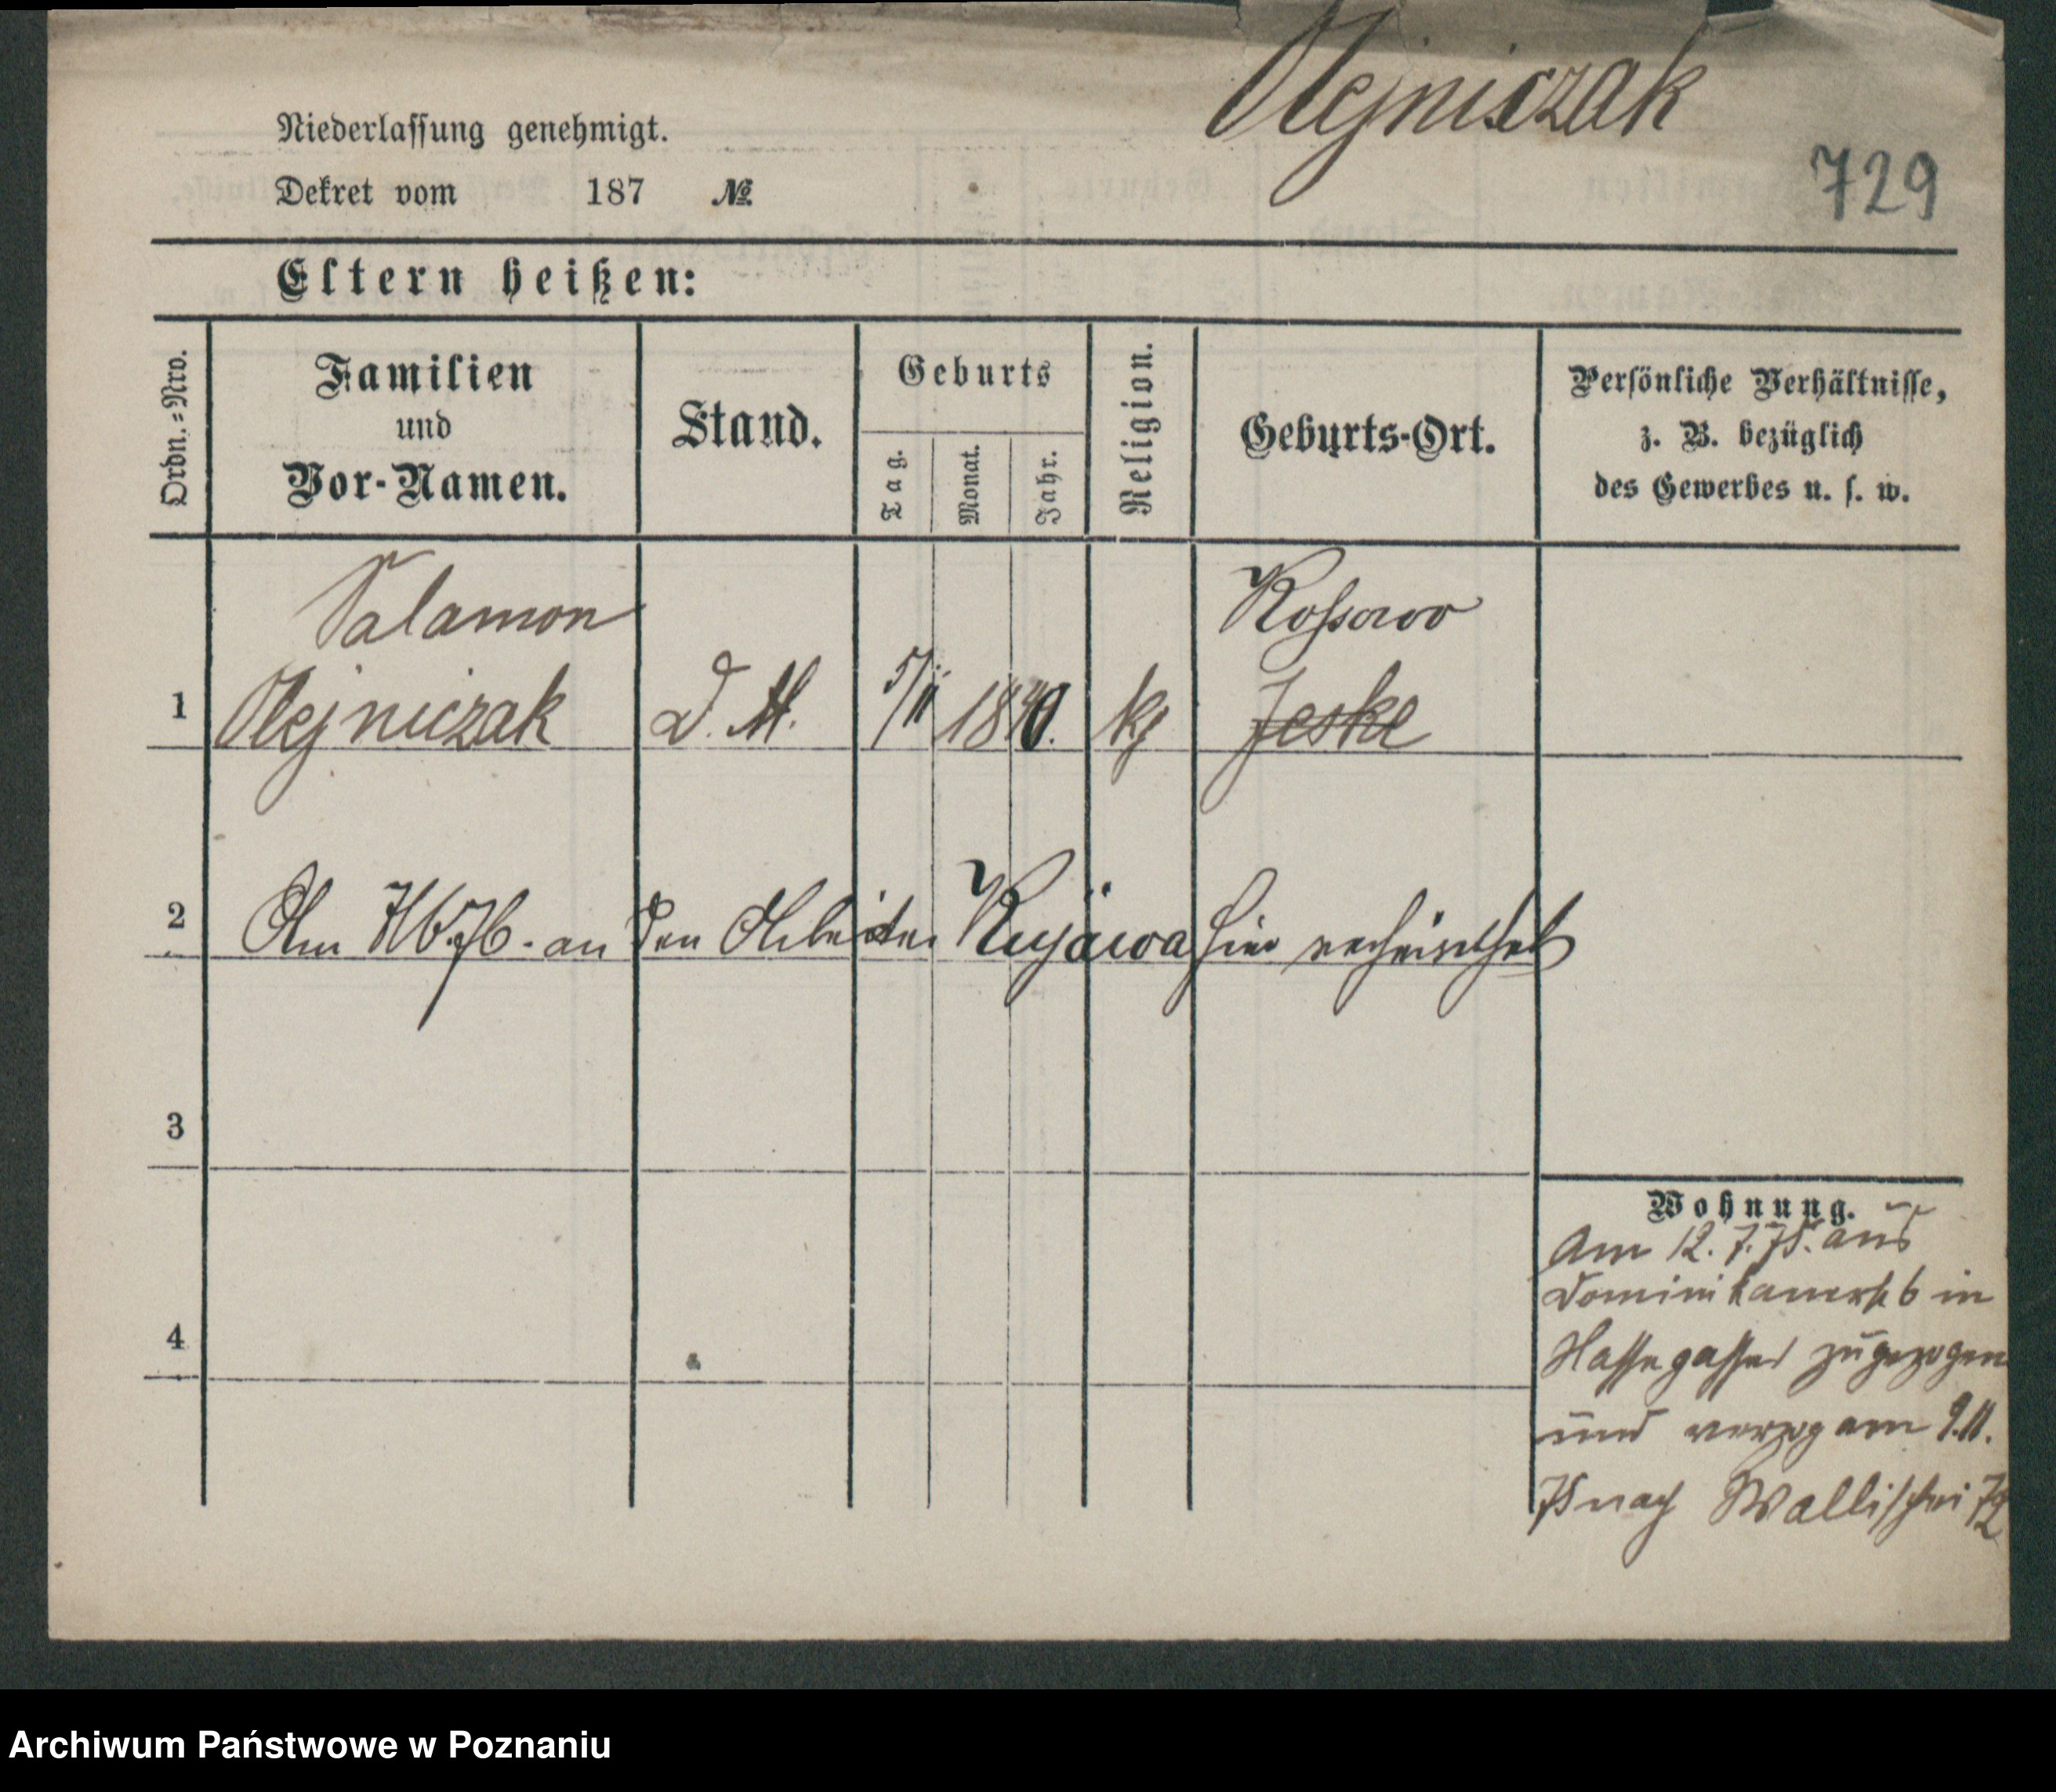 Olejniczak
729
Niederlassung genehmigt.
Dekret vom 187 №
Eltern heißen:
Ordn.=Nro.
Familien
und
Vor-Namen.
Stand.
Geburts
Tag.
Monat.
Jahr.
Religion.
Geburts-Ort.
Persönliche Verhältnisse,
z. B. bezüglich
des Gewerbes u. s. w.
Salamon
Kossowo
1 Olejniczak D. M. 5/11 1840. kg Jeske
2 Am an den Arbeiter Kujawa hier verheirathet
3
4
Wohnung.
Am 12. 7. 75. aus
Dominikanerst 6 in
zugezogen
und verzog am 9.11.
75 nach Wallischei 72
Archiwum Państwowe w Poznaniu